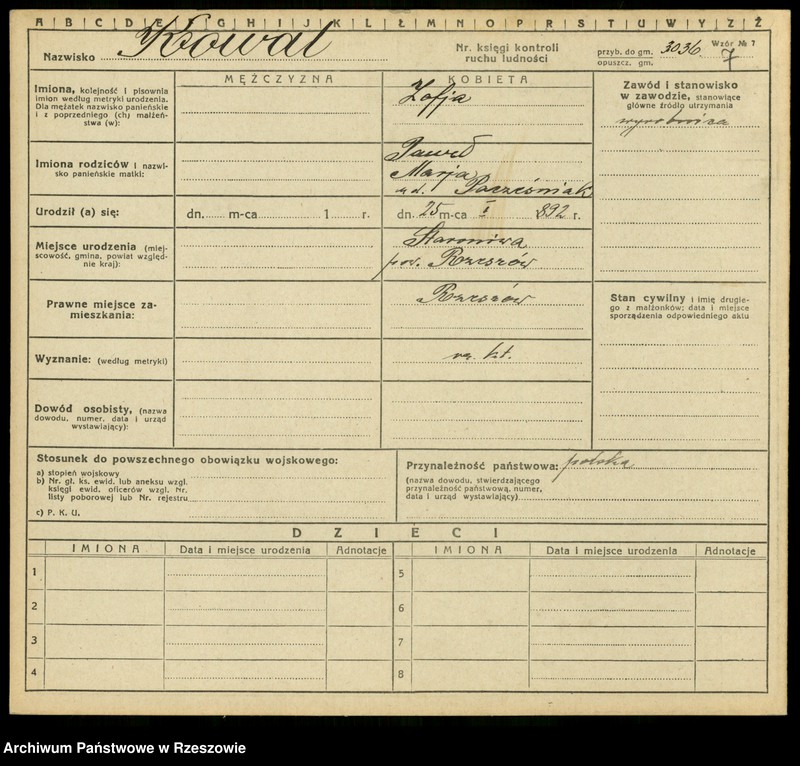 A B C D E F G H I J K L Ł M N O P R S T U W Y Z Ż
Nazwisko Kowal
Nr. księgi kontroli
ruchu ludności
przyb. do gm. 3036
opuszcz. gm.
Wzór № 7
7
MĘŻCZYZNA
KOBIETA
Imiona, kolejność i pisownia
imion według metryki urodzenia.
Dla mężatek nazwisko panieńskie
i z poprzedniego (ch) małżeń-
stwa (w):
Zofja
Zawód i stanowisko
w zawodzie, stanowiące
główne źródło utrzymania
wyrobnica
Imiona rodziców i nazwi-
sko panieńskie matki:
Paweł
Marja
z d. Pacześniak
Urodził (a) się:
dn. m-ca 1 r.
dn. 25 m-ca I 892 r.
Miejsce urodzenia (miej-
scowość, gmina, powiat względ-
nie kraj):
Staroniwa
pow. Rzeszów
Prawne miejsce za-
mieszkania:
Rzeszów
Stan cywilny i imię drugie-
go z małżonków; data i miejsce
sporządzenia odpowiedniego aktu
Wyznanie: (według metryki)
rz. kt.
Dowód osobisty, (nazwa
dowodu, numer, data i urząd
wystawiający):
Stosunek do powszechnego obowiązku wojskowego:
a) stopień wojskowy
b) Nr. gł. ks. ewid. lub aneksu wzgl.
księgi ewid. oficerów wzgl. Nr.
listy poborowej lub Nr. rejestru
c) P. K. U.
Przynależność państwowa: polska
(nazwa dowodu, stwierdzającego
przynależność państwową, numer,
data i urząd wystawiający)
DZIECI
IMIONA Data i miejsce urodzenia Adnotacje IMIONA Data i miejsce urodzenia Adnotacje
1 5
2 6
3 7
4 8
Archiwum Państwowe w Rzeszowie